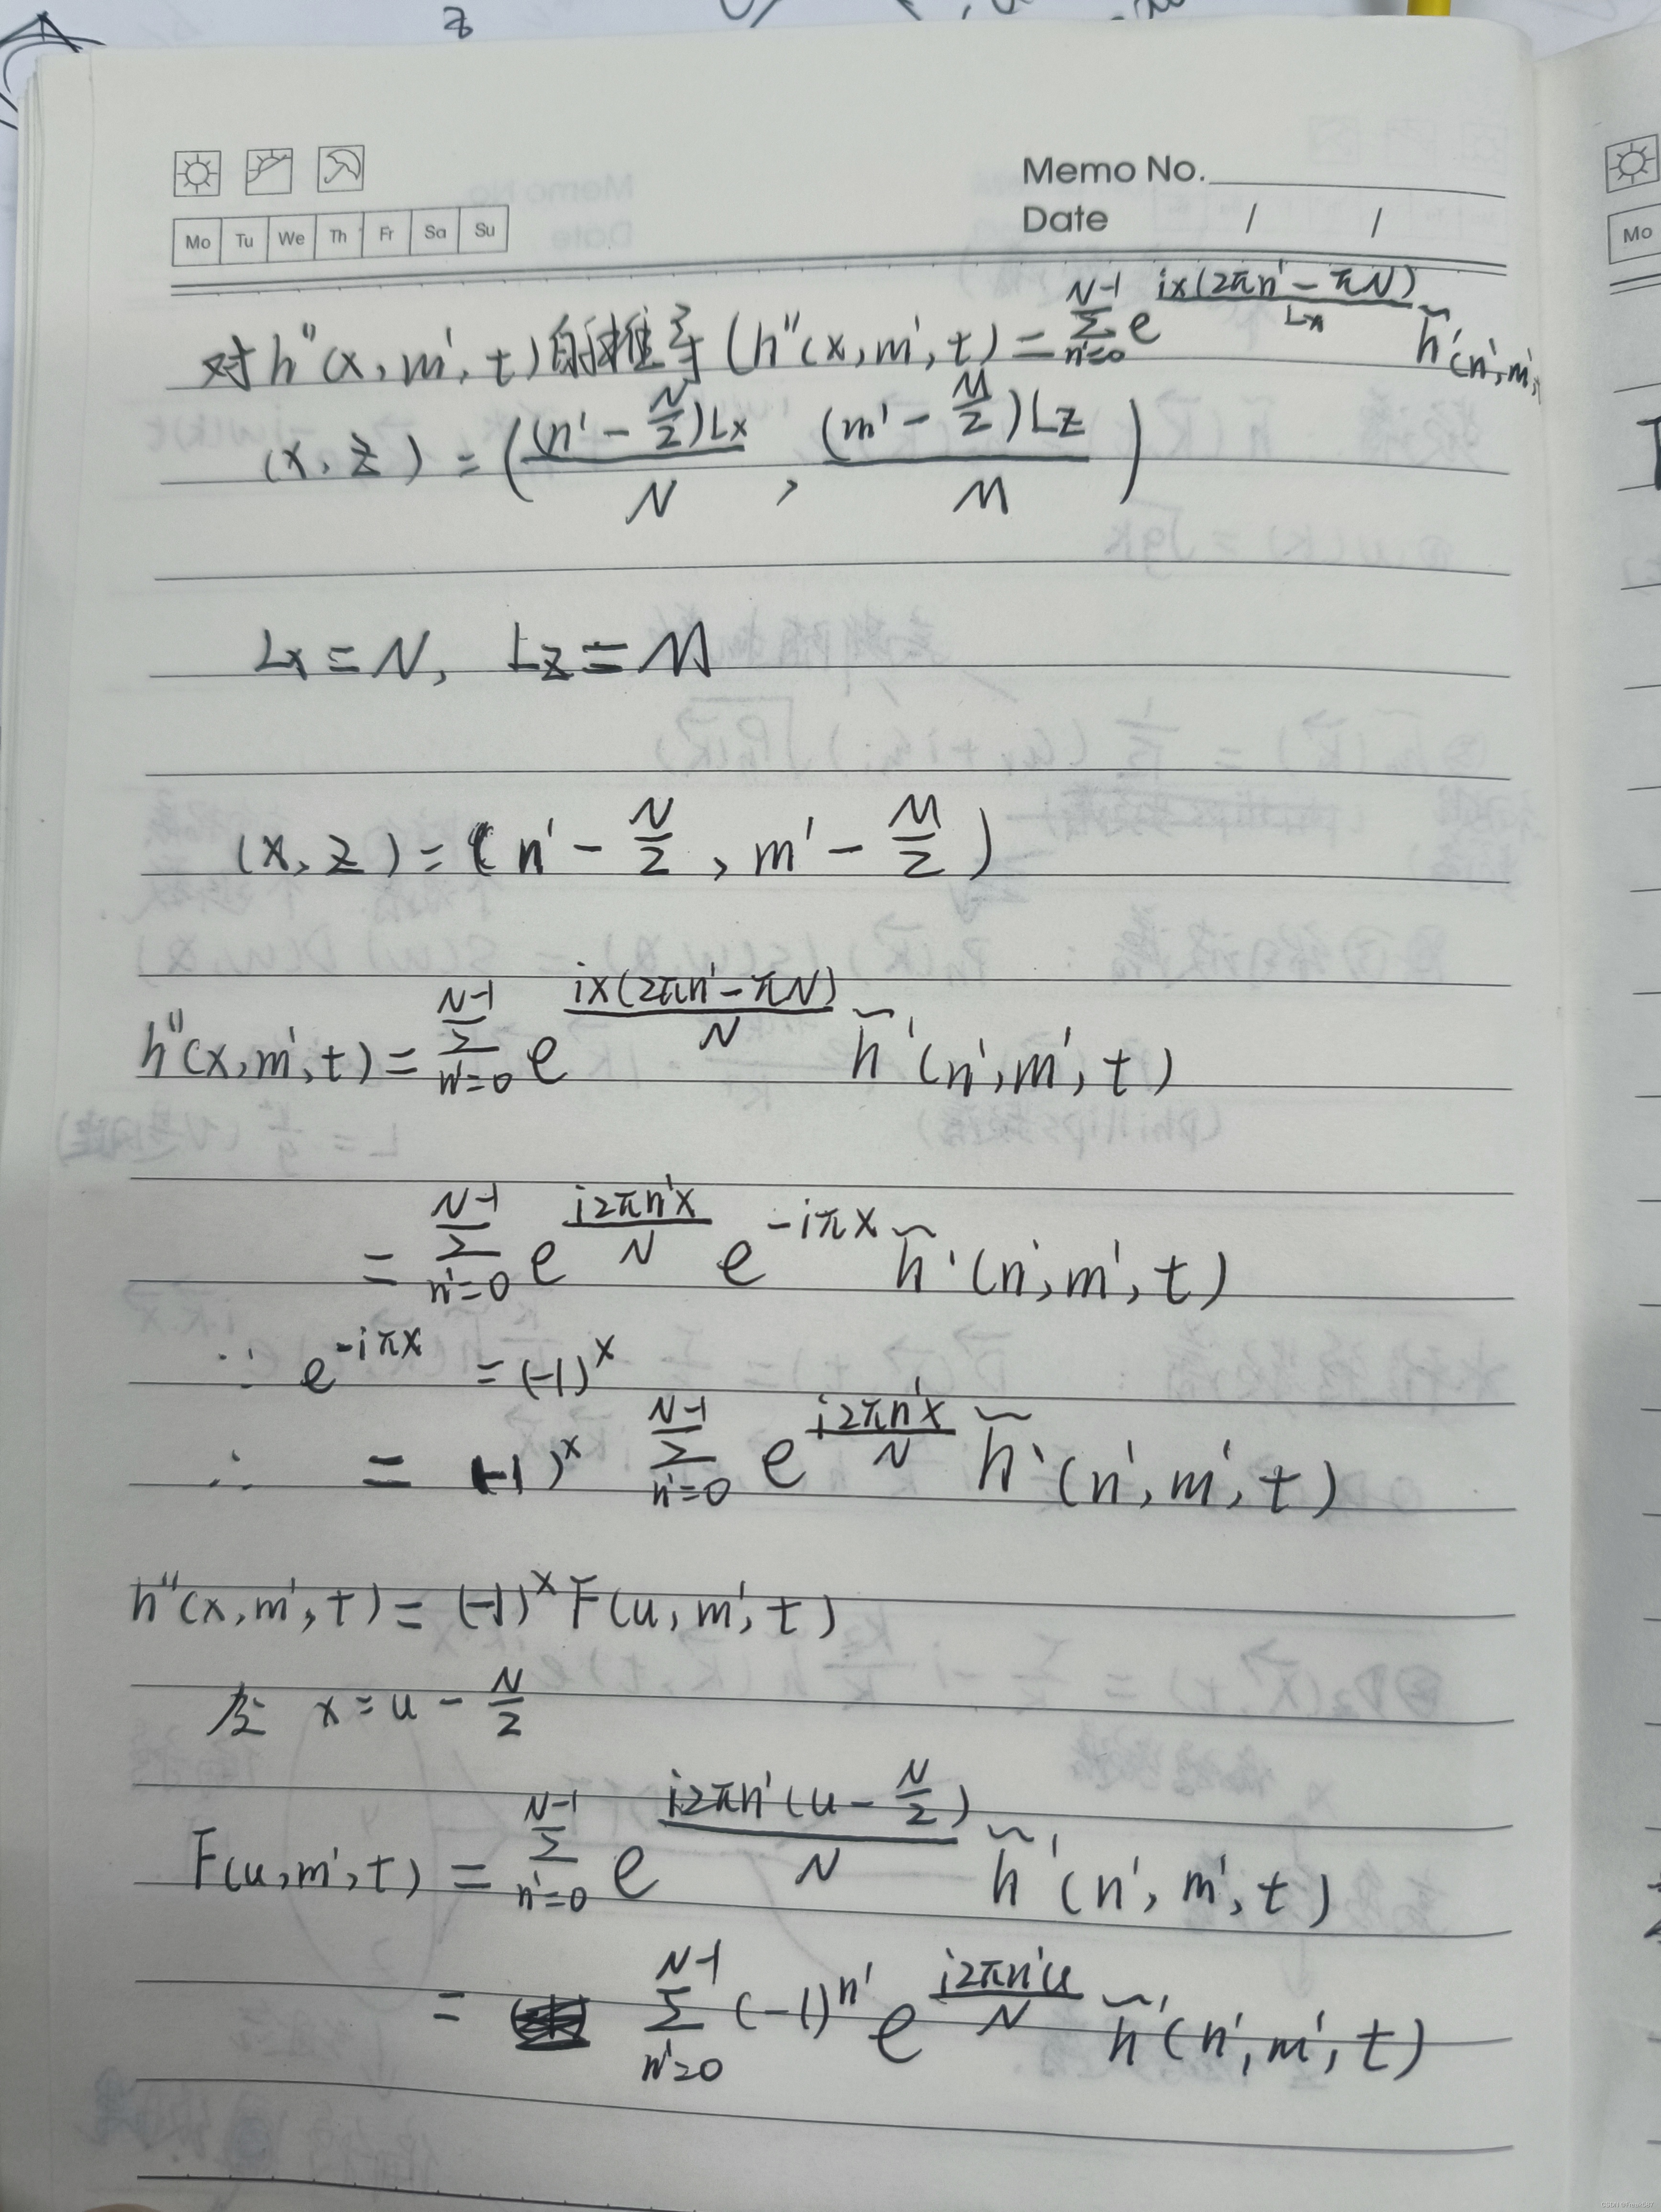 z
Memo No.
Date / /
Mo Tu We Th Fr Sa Su
Mo
对h''(x, m', t)的推导 (h''(x, m', t) = \sum_{n'=0}^{N-1} e^{\frac{ix(2πn' - πN)}{Lx}} \tilde{h}'(n', m',
(x, z) = (\frac{(n' - \frac{N}{2})Lx}{N}, \frac{(m' - \frac{M}{2})Lz}{M})
Lx = N, Lz = M
(x, z) = (n' - \frac{N}{2}, m' - \frac{M}{2})
h''(x, m', t) = \sum_{n'=0}^{N-1} e^{\frac{ix(2πn' - πN)}{N}} \tilde{h}'(n', m', t)
= \sum_{n'=0}^{N-1} e^{\frac{i2πn'x}{N}} e^{-iπx} \tilde{h}'(n', m', t)
∵ e^{-iπx} = (-1)^x
∴ = (-1)^x \sum_{n'=0}^{N-1} e^{\frac{i2πn'x}{N}} \tilde{h}'(n', m', t)
h''(x, m', t) = (-1)^x F(u, m', t)
x = u - \frac{N}{2}
F(u, m', t) = \sum_{n'=0}^{N-1} e^{\frac{i2πn'(u - \frac{N}{2})}{N}} \tilde{h}'(n', m', t)
= \sum_{n'=0}^{N-1} (-1)^{n'} e^{\frac{i2πn'u}{N}} \tilde{h}'(n', m', t)